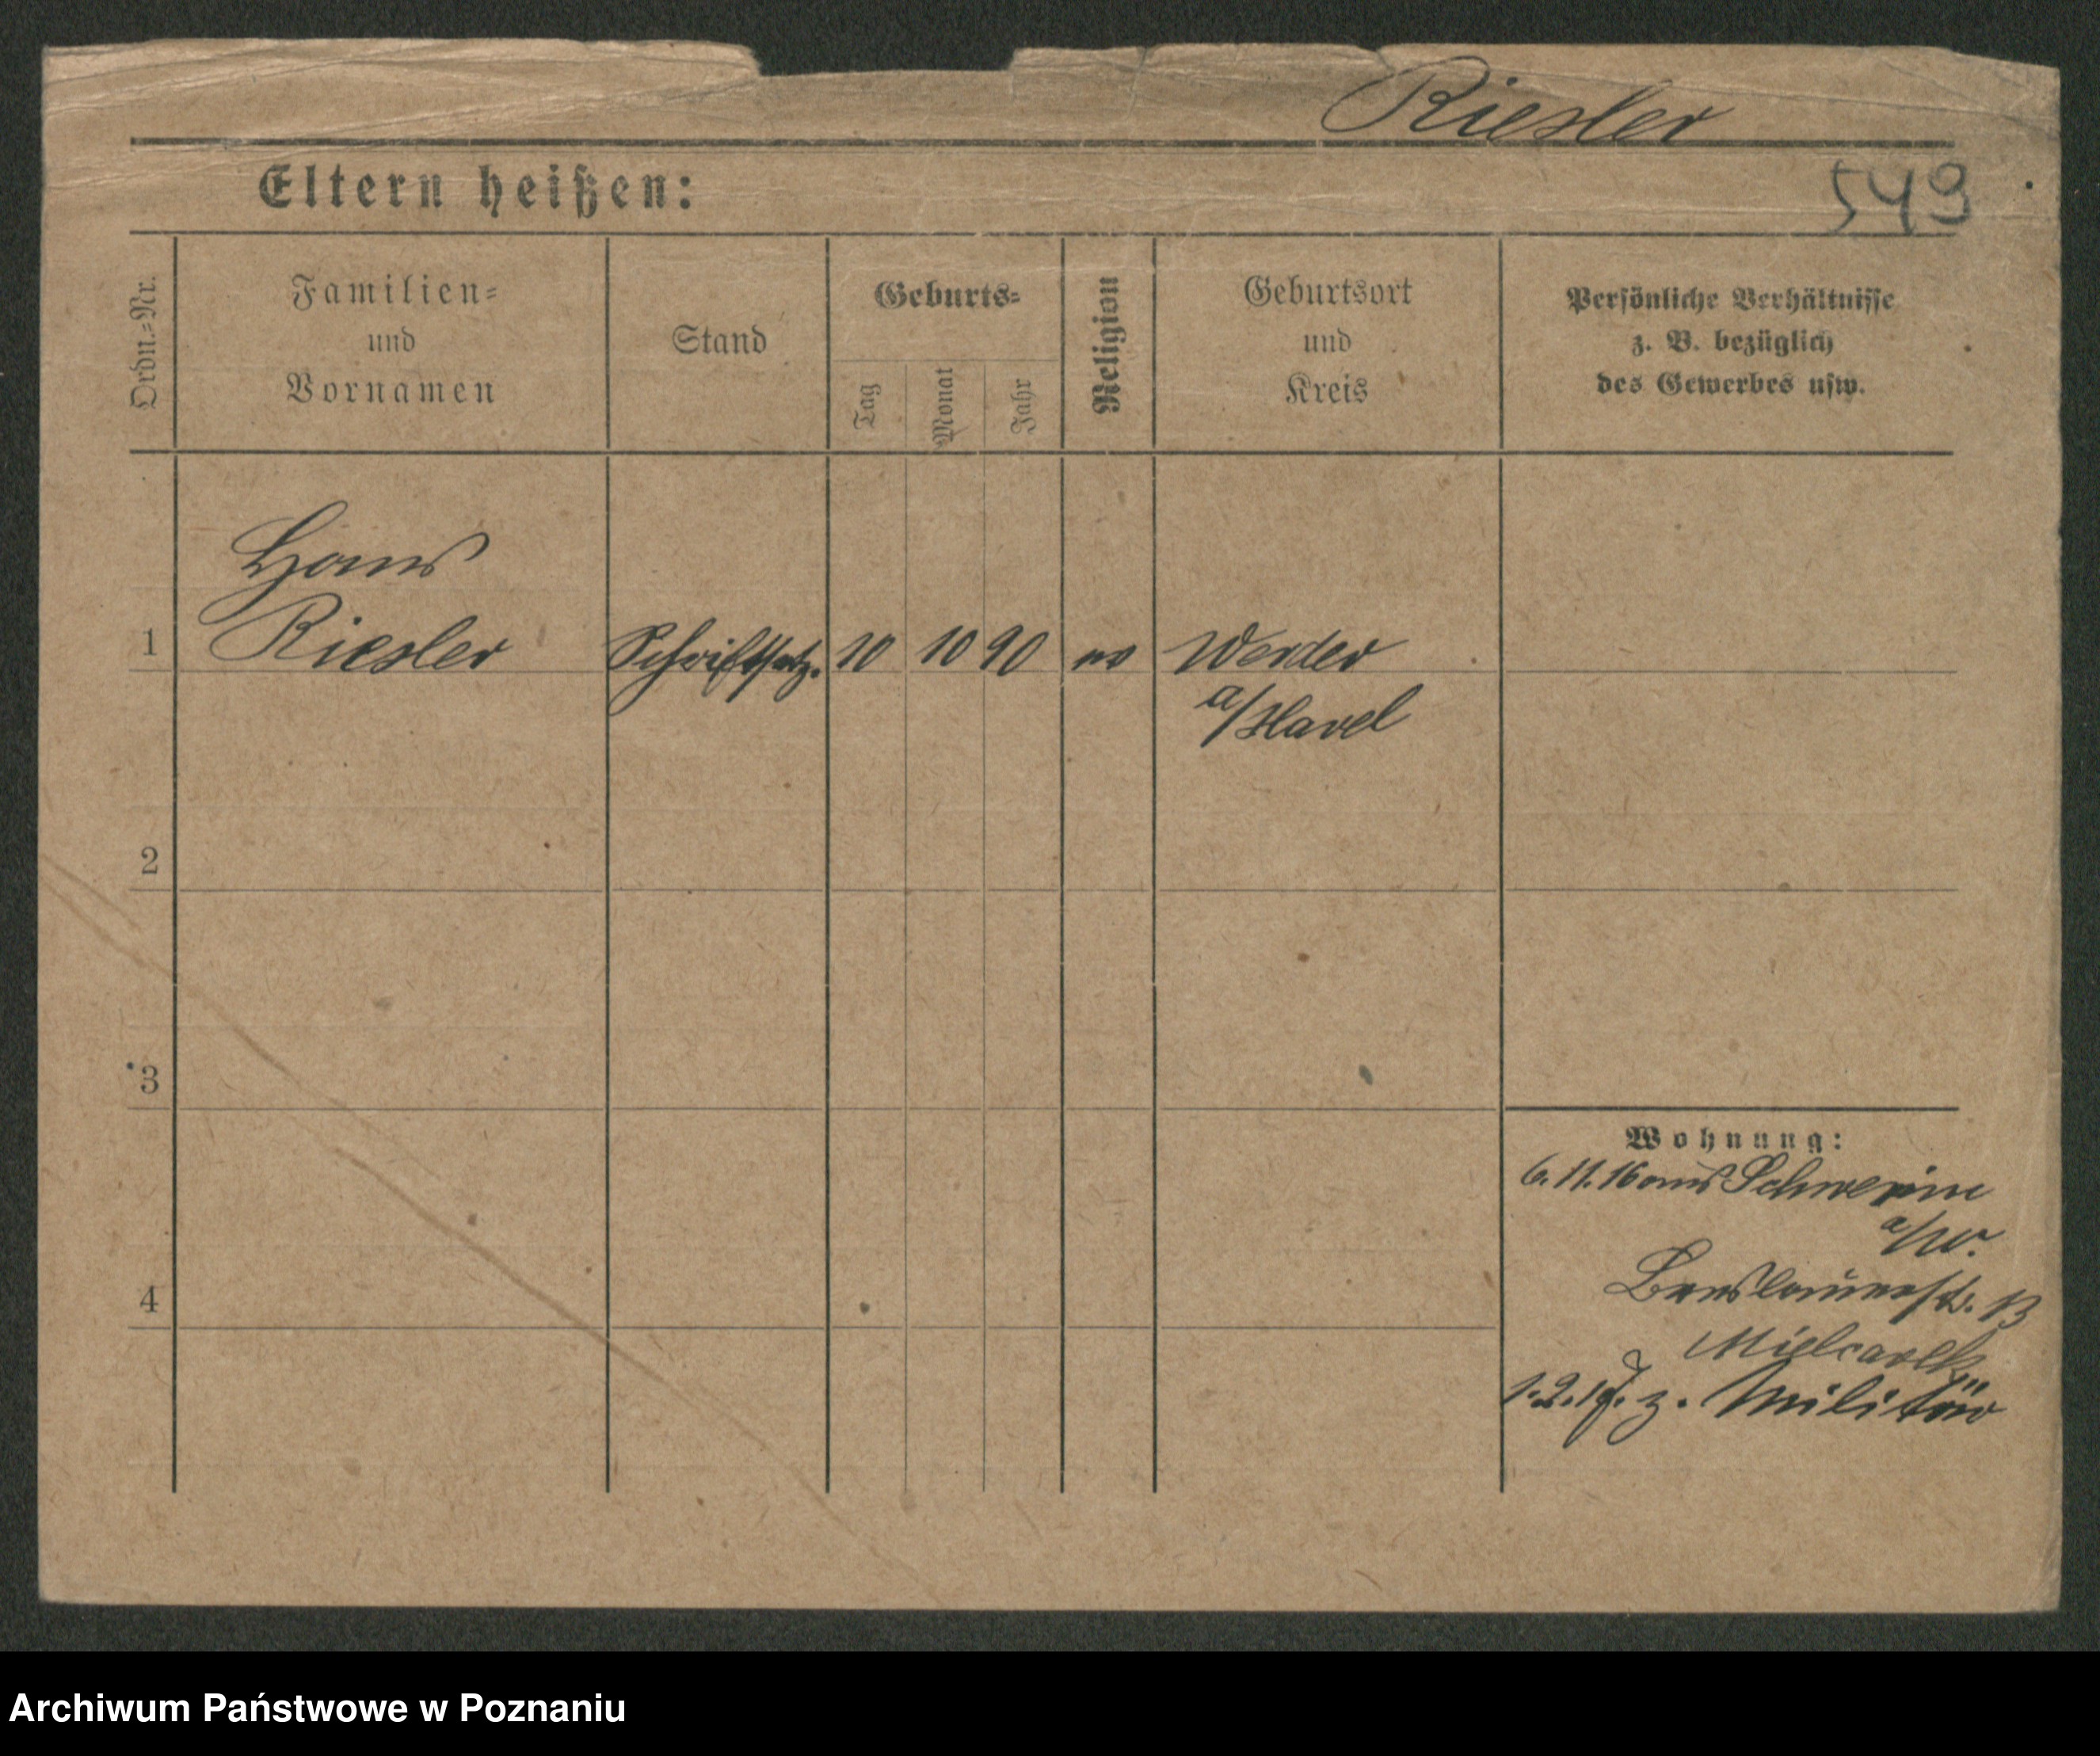 Riesler
Eltern heißen:
549
Ordn.-Nr.
Familien-
und
Vornamen
Stand
Geburts-
Tag
Monat
Jahr
Religion
Geburtsort
und
Kreis
Persönliche Verhältnisse
z. B. bezüglich
des Gewerbes usw.
Hans
1 Riesler Schriftsetz. 10 10 90 Werder
a/Havel
2
3
Wohnung:
6.11.16 aus Schwerin
a/W.
Breslauerstr. 13
4
Mielcarek
1.2.17. z. Militär
Archiwum Państwowe w Poznaniu